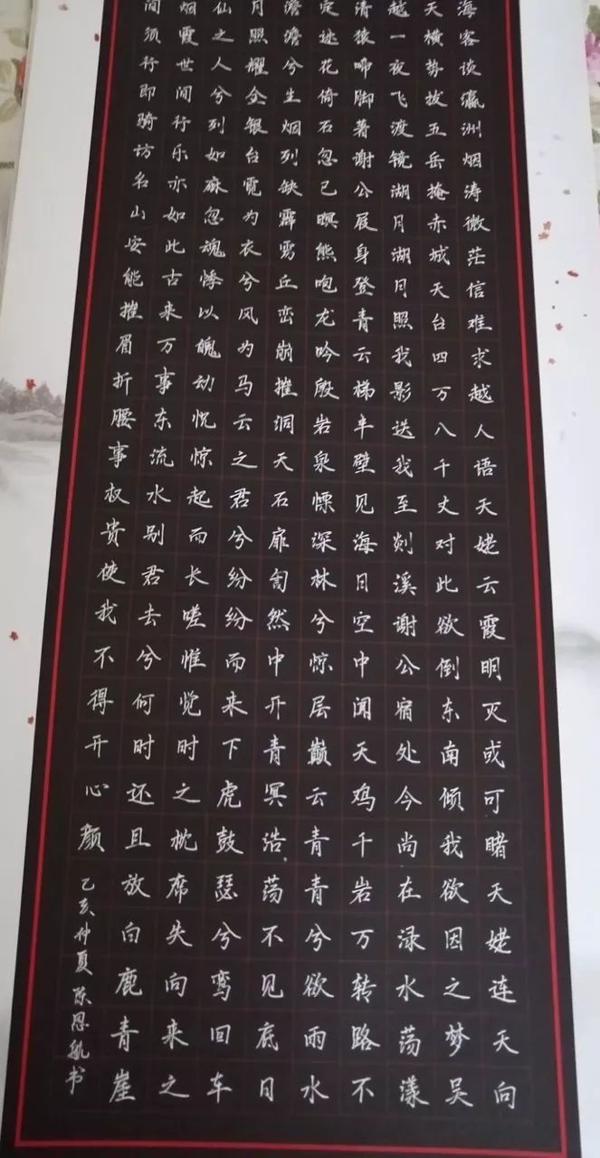 海客谈瀛洲烟涛微茫信难求越人语天姥云霞明灭或可睹天姥连天向
天横势拔五岳掩赤城天台四万八千丈对此欲倒东南倾我欲因之梦吴
越一夜飞渡镜湖月湖月照我影送我至剡溪谢公宿处今尚在渌水荡漾
清猿啼脚著谢公屐身登青云梯半壁见海日空中闻天鸡千岩万转路不
定迷花倚石忽已暝熊咆龙吟殷岩泉慄深林兮惊层巅云青青兮欲雨水
澹澹兮生烟列缺霹雳丘峦崩摧洞天石扉訇然中开青冥浩荡不见底日
月照耀金银台霓为衣兮风为马云之君兮纷纷而来下虎鼓瑟兮鸾回车
仙之人兮列如麻忽魂悸以魄动恍惊起而长嗟惟觉时之枕席失向来之
烟霞世间行乐亦如此古来万事东流水别君去兮何时还且放白鹿青崖
间须行即骑访名山安能摧眉折腰事权贵使我不得开心颜
乙亥仲夏 陈恩航书